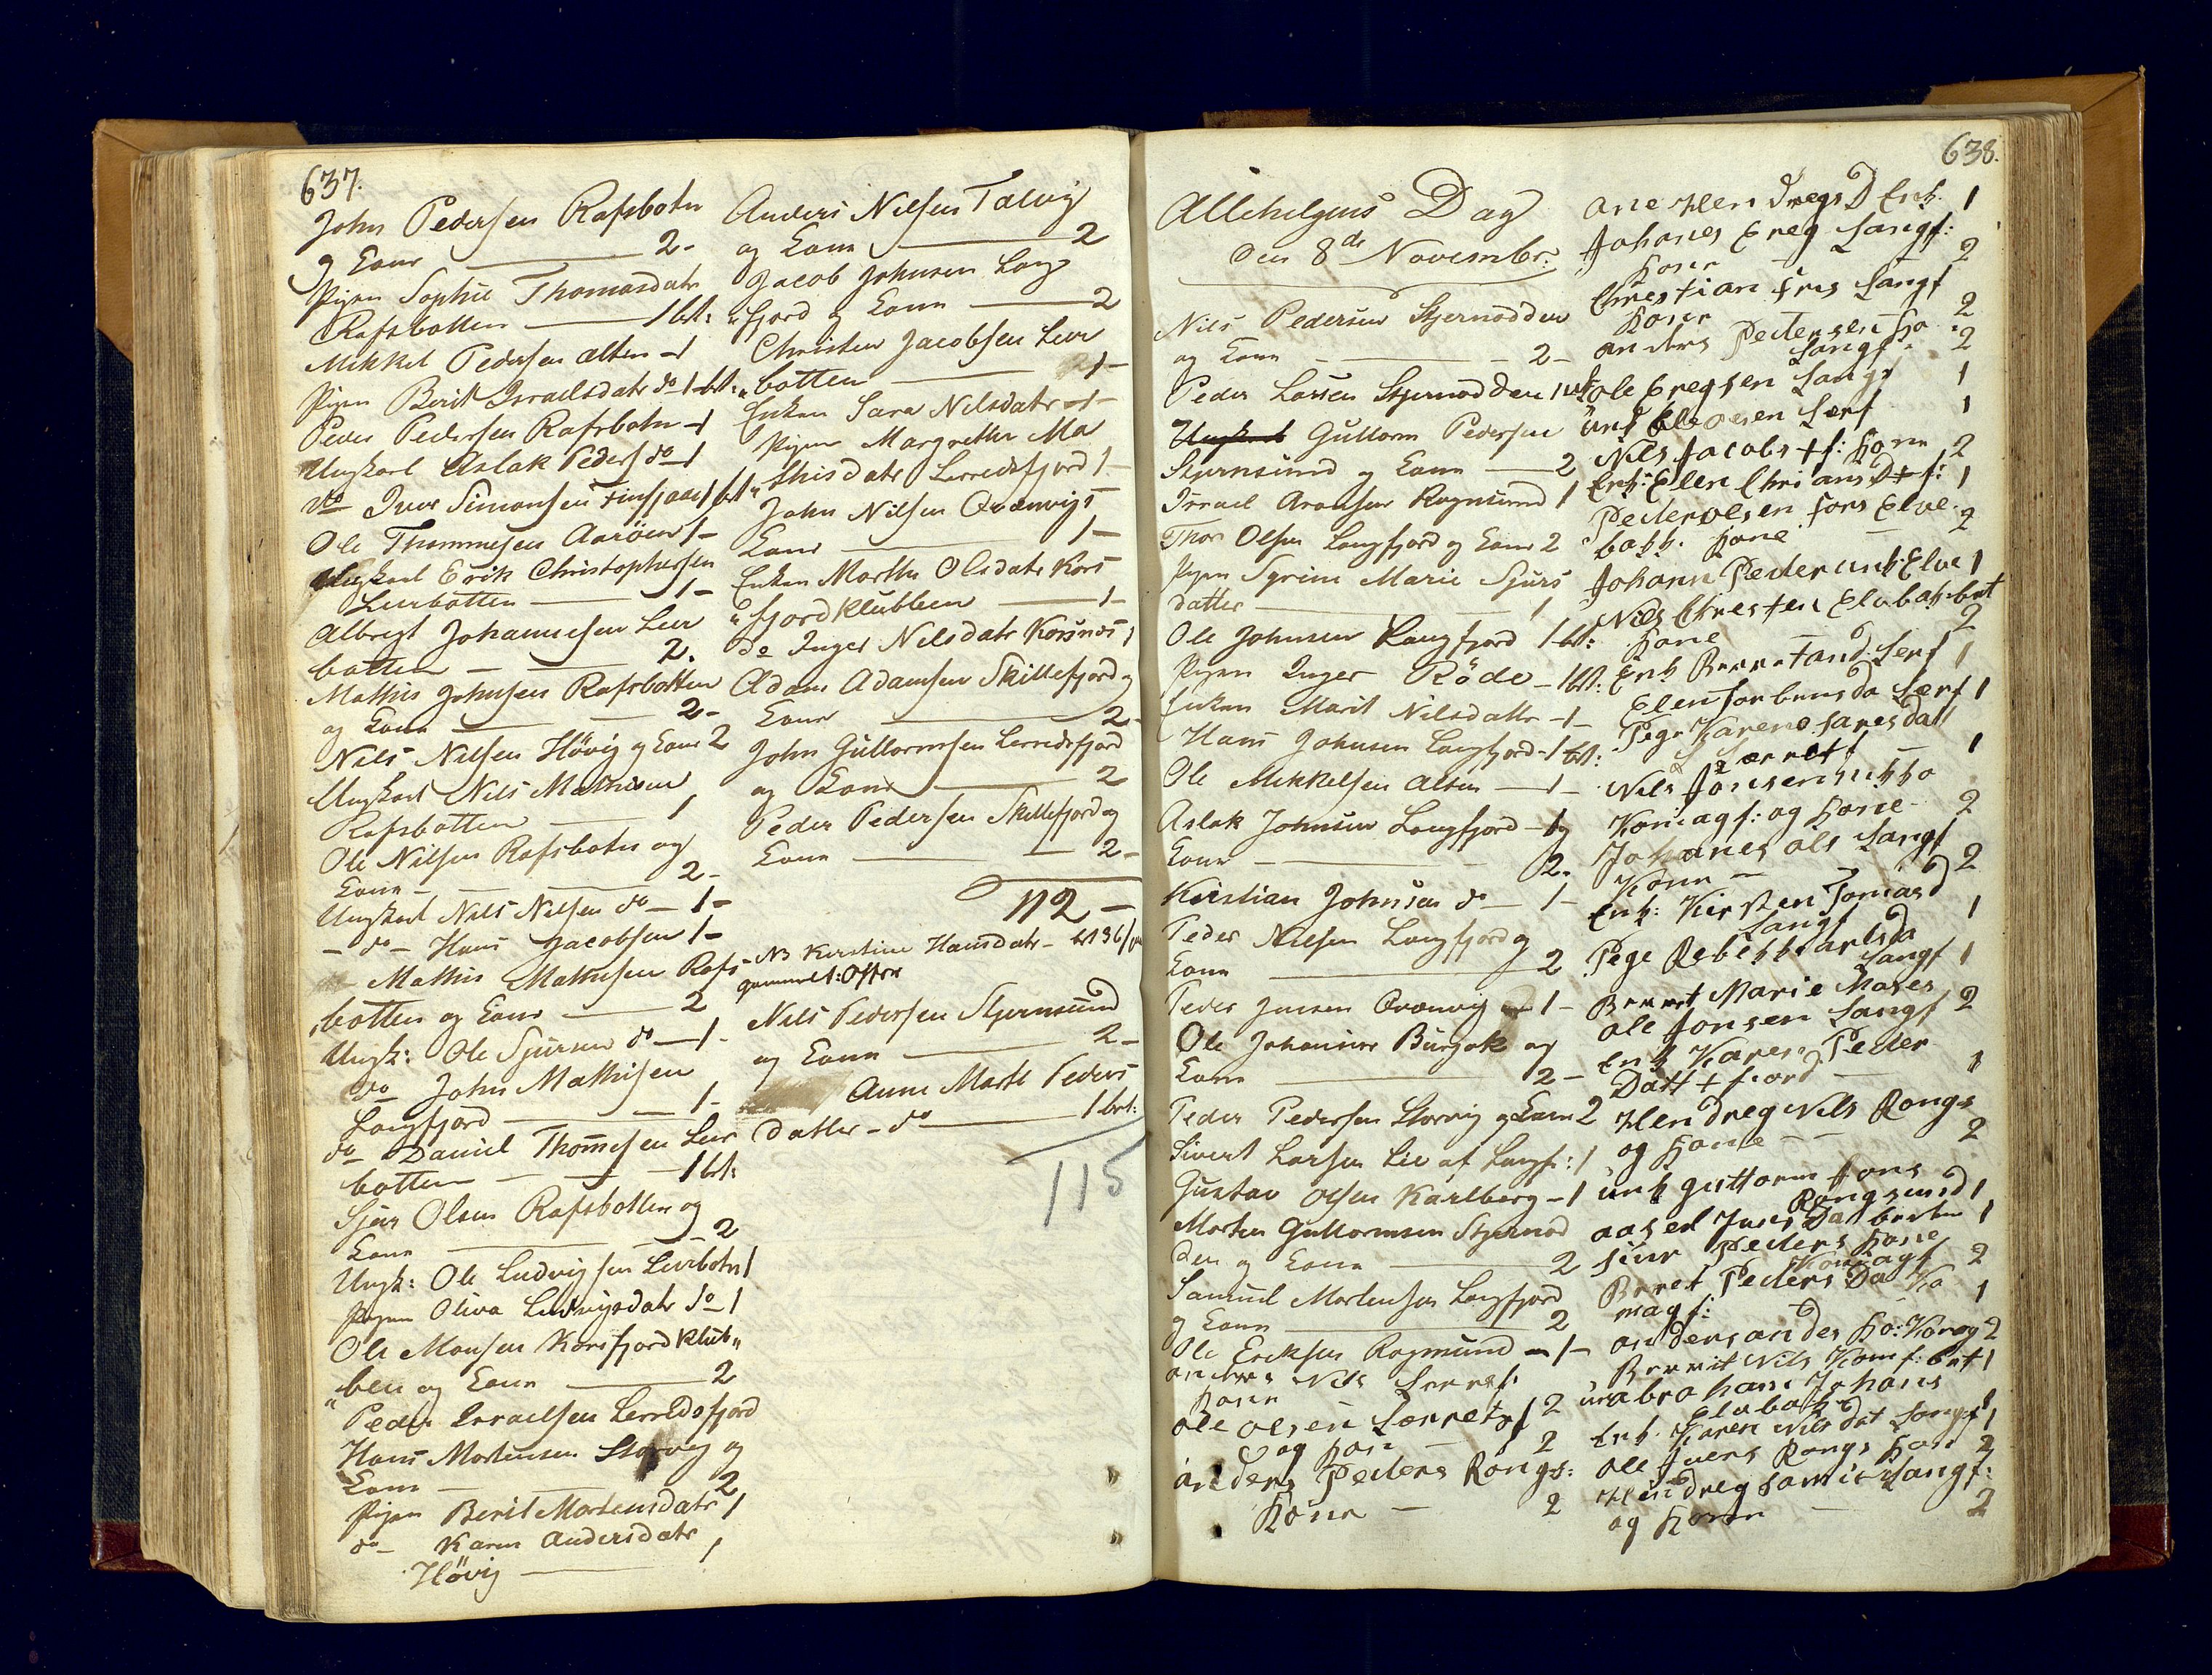 637.
John Pedersen Rafsbotn
og Kone 2-
Pigen Sophie Thomasdatr
Rafsbotten 1 bet:
Mikkel Pedersen Alten - 1
Pigen Berit Israelsdatr do 1 bet:
Peder Pedersen Rafsbotn - 1
Ungkarl Aslak Peders do - 1
do Iver Simonsen 1 bet
Ole Thommesen Aarøen 1 -
Ungkarl Erik Christophersen
Leerbotten 1 -
Albregt Johannesen Leer
botten 2.
Mathis Johnsen Rafsbotten
og Kone 2 -
Nils Nilsen Høvig og Kone 2
Ungkarl Nils Mathisen
Rafsbotten 1
Ole Nilsen Rafsbotn og
Kone - 2 -
Ungkarl Nils Nilsen do - 1 -
- do - Hans Jacobsen 1 -
Mathis Mathisen Rafs-
botten og Kone 2
Ungk: Ole Sjursen do - 1 -
do John Mathisen
Langfjord 1 -
do Daniel Thomesen Leer
botten 1 bet:
Sjur Olsen Rafsbotten og
Kone 2
Ungk: Ole Ludvigsen Leerbotn 1
Pigen Oliva Ludvigsdatr do 1
Ole Monsen Korsfjord Klub„
„ben og Kone 2
Peder Israelsen Lerredsfjord
Hans Mortensen Storvig og
Kone - 2
Pigen Berit Mortensdatr 1
do - Karen Andersdatr
Høvig 1
Anders Nilsen Talvig
og Kone 2
Jacob Johnsen Lang
„fjord og Kone 2
Christen Jacobsen Leer
„botten 1 -
Enken Sara Nilsdatr - 1 -
Pigen Margrethe Ma
„thisdatr Lerredsfjord 1 -
John Nilsen Qvænvigs
Kone 1 -
Enken Marthe Olsdatr Kors
„fjordklubben 1 -
do Inger Nilsdatr Korsnæs 1
Adam Adamsen Skillefjord og
Kone 2 -
John Guttormsen Lerredsfjord
og Kone 2
Peder Pedersen Skillefjord og
Kone 2 -
112 -
NB Kirstine Hansdatr - bet 36/
gammelt: Offer
Nils Pedersen Stjernsund
og Kone 2 -
Anne Marte Peders
datter - do 1 bet:
115
638.
Allehelgens Dag
den 8de Novembr:
Nils Pedersen Stjernodden
og Kone - 2 -
Peder Larsen Stjernodden 1
Ungkarl Guttorm Pedersen
Stjernsund og Kone 2
Israel Aronsen Rognsund 1
Thor Olsen Langfjord og Kone 2
Pigen Syrine Marie Sjurs
datter 1
Ole Johnsen Langfjord 1 bet:
Pigen Inger Røde - 1 bet:
Enken Marit Nilsdattr - 1 -
Hans Johnsen Langfjord - 1 bet:
Ole Mikkelsen Alten - 1 -
Aslak Johnsen Langfjord - og
Kone - 2.
Kirstian Johnsen do - 1 -
Peder Nielsen Langfjord og
Kone 2
Peder Jensen Qvænvig 1 -
Ole Johannes Burjok og
Kone 2 -
Peder Pedersen Storvig og Kone 2
Sivert Larsen Lie af Langfj: 1
Gustav Olsen Karlberg - 1
Morten Guttormsen Stjernod
den og Kone 2
Samuel Mortensen Langfjord
og Kone 2
Ole Eriksen Rognsund - 1 -
anders Nils Lerresf:
Kone 2
ole olsen Lærretsf
og Kon - 2
anders Peders Rongs:
Kone - 2
ane Hendregs D Enk. 1
Johanes Ereg Langf:
Kone 2
Chrestian Langf
Kone 2
anders Pedersen Ko
Langf. 2
ole Eregsen Langf 1
unk Ole olsen Lerf 1
Nils Jacobs + f: Kone 2
Enk: Elen Chrians D + f: 1
Peder olsen fors Elve
bakk. Kone 2
Johann Peder unk: Elve 1
Nils Chresten Elvebak: bet
Kone 2
Enk Berret and: Lerf 1
Elen Torbens da Lærf 1
Pege Karen Lares dat
Lærretf 1
Nils Jonsen
Komagf: og Kone - 2
Johanes ols Langf
Kone - 2
Enk: Kirsten Tomas D
Langf 1
Pege Rebekk
Langf 1
Berret Marie Moses
ole Jonsen Langf 2
Enk Karen Peder
Datt + fiord 1
Hendreg Nils Rongs
og Kone - 2
unk guttorm Jons
Rongsund 1
sivr Peders Kone
Komagf 2
Berret Peders Da Ko
magf: 1
anders andes Ko: Komag 2
Berret Nils Komf: bet 1
abraham Johans
Elvebak 1
Enk. Karen Nils dat Langf 1
ole Ivers Rongs Kon 2
Hendreg Langf:
og Kone 2